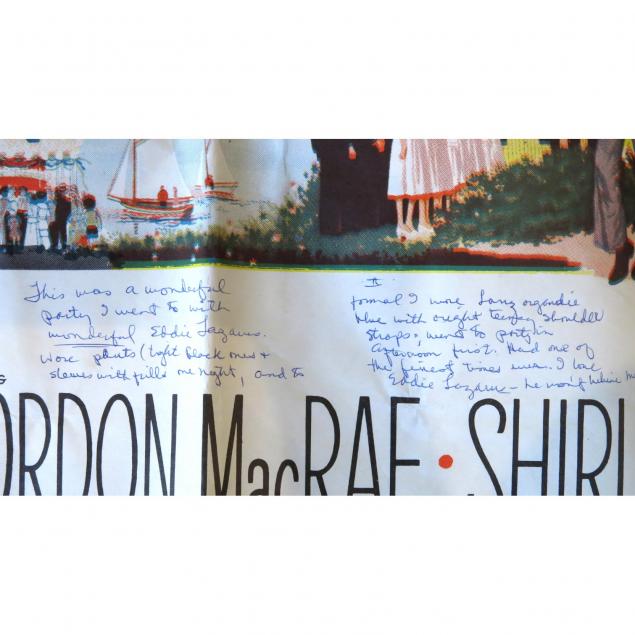 This was a wonderful
party I went to with
wonderful Eddie Lazarus.
Wore pants (tight black ones &
sleeves with frills one night, and to
II
formal I wore Lanz organdie
blue with shoulder
straps, went to party in
afternoon first. Had one of
the finest times ever. I love
Eddie Lazarus - he won't believe me
G
ORDON MacRAE · SHIRL